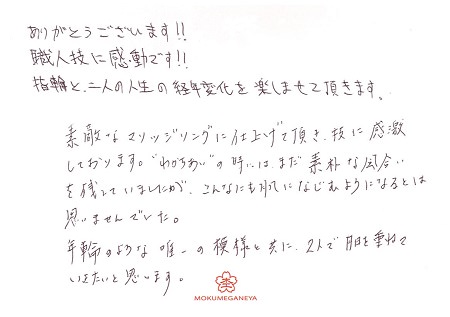 ありがとうございます!!
職人技に感動です!!
指輪と、二人の人生の経年変化を楽しませて頂きます。
素敵なマリッジリングに仕上げて頂き、技に感激
しております。"わかちあい"の時には、まだ素朴な風合い
を残していましたが、こんなにも肌になじむようになるとは
思いませんでした。
年輪のような唯一の模様と共に、2人で月日を重ねて
いきたいと思います。
MOKUMEGANEYA